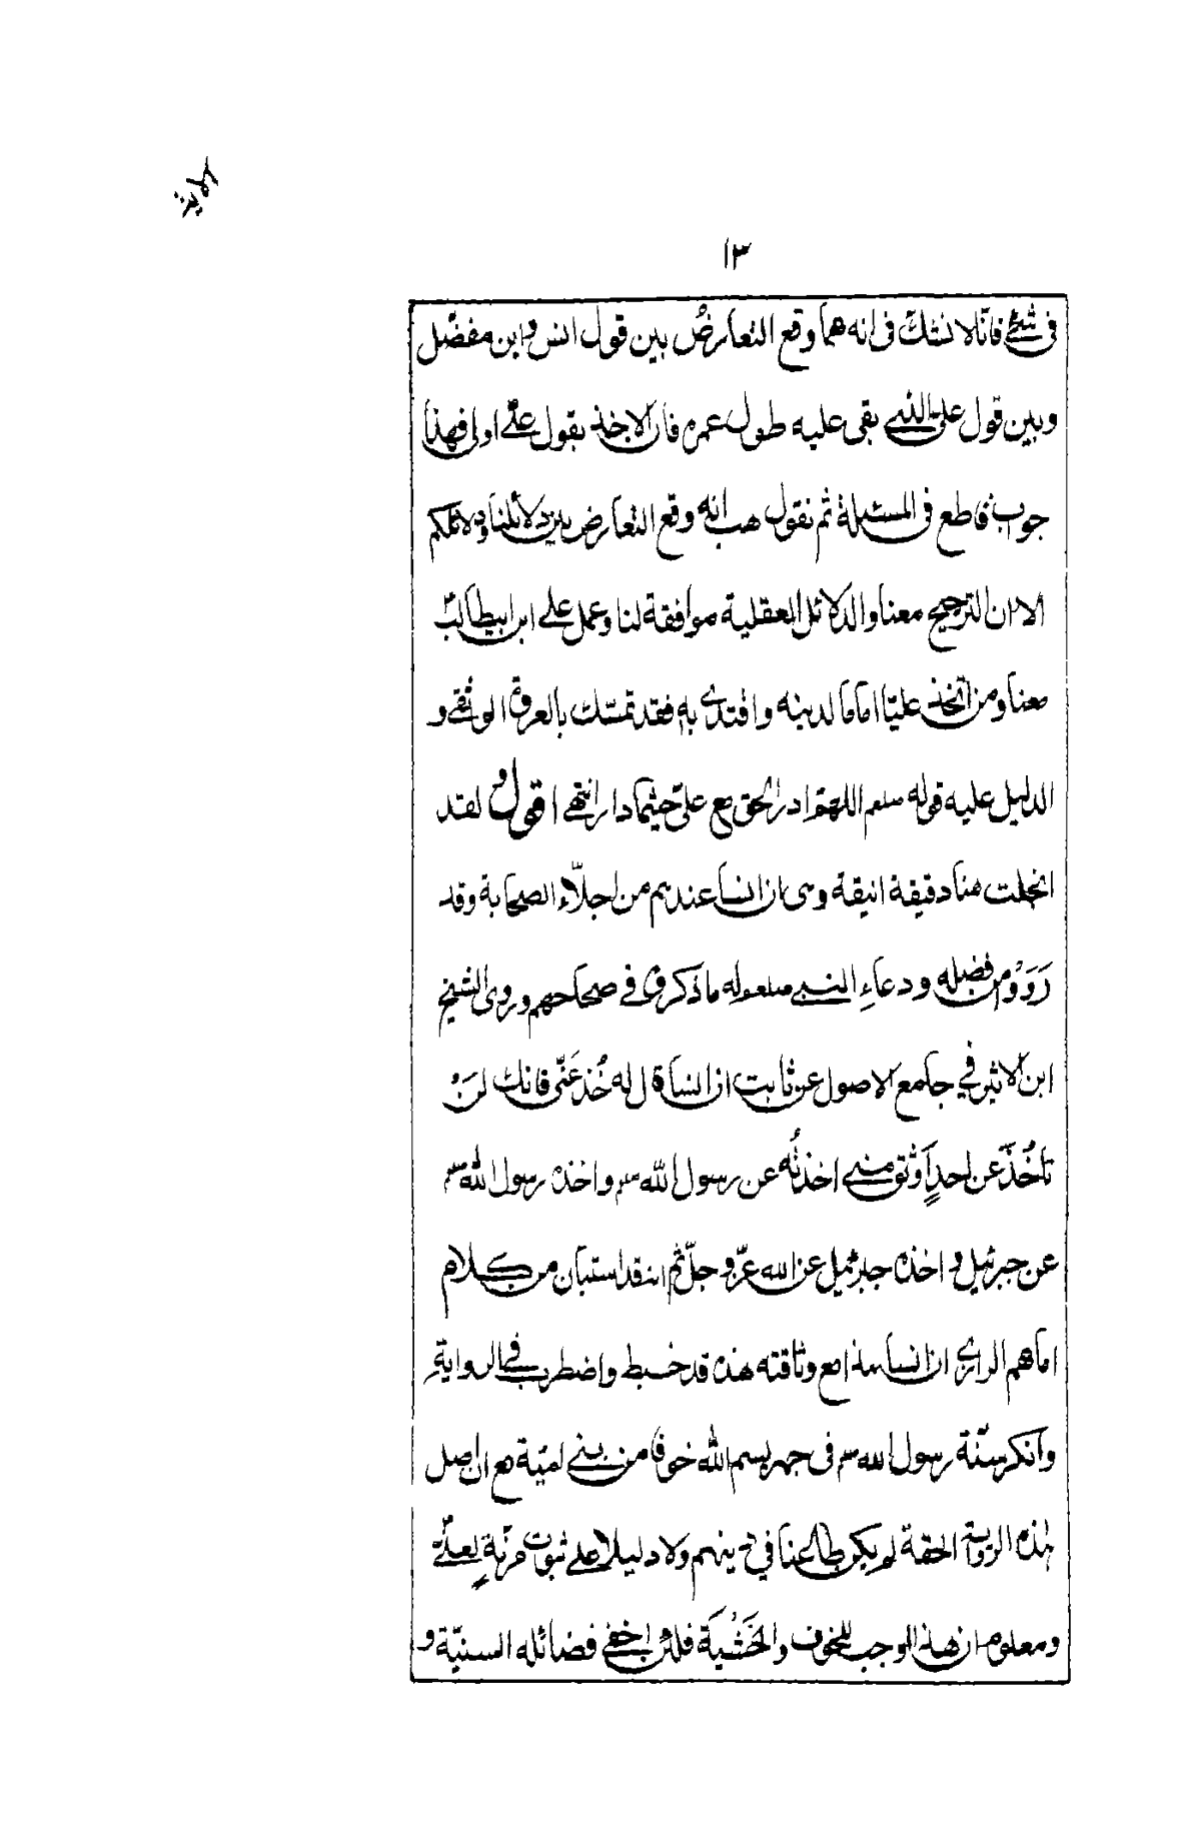 ١٣
فى شئ فانّا لا نشك فى انه مهما وقع التعارض بين قول انس وابن مفضّل
وبين قول علىّ الذى بقى عليه طول عمره فان الاخذ بقول علىّ اولى فهذا
جواب قاطع فى المسئلة ثم نقول هب انه وقع التعارض بين دلائلنا ودلائلكم
الا ان الترجيح معنا والدلائل العقلية موافقة لنا وعمل على ابن ابيطالبؑ
معنا ومن اتخذ عليّا اماما لدينه واقتدى به فقد تمسّك بالعروة الوثقى و
الدليل عليه قوله صلعم اللهمّ ادر الحق مع علىّ حيثما دار انتهى اقول لقد
انجلت هنا دقيقة انيقة وهى ان انسا عندهم من اجلّاء الصحابة وقد
رَوَوْا من فضله ودعاءِ النبى صلعم له ما ذكروه فى صحاحهم وروى الشيخ
ابن الاثير فى جامع الاصول عن ثابت ان انسا قال له خُذ عَنّى فانك لَنْ
تاخُذَ عن احدٍ اَوثق منى اخذتُه عن رسول اللّه ص واخذه رسول اللّه ص
عن جبرئيل واخذه جبرئيل عن الله عزّ وجلّ ثم انه قد استبان من كلام
امامهم الرازى ان انسا هذا مع وثاقته هذه قد خبط واضطرب فى الرواية
وانكر سنّة رسول الله ص فى جهر بسم اللّه خوفا من بنى اميّة مع ان اصل
هذه الرواية الحقة لم يكن طاعنا فى دينهم ولا دليلا على ثبوت مزيّة لعلىّ
ومعلوم ان هذا لا يوجب للخوف والخَشْيَة فلئن اخفى فضائله السنيّة و